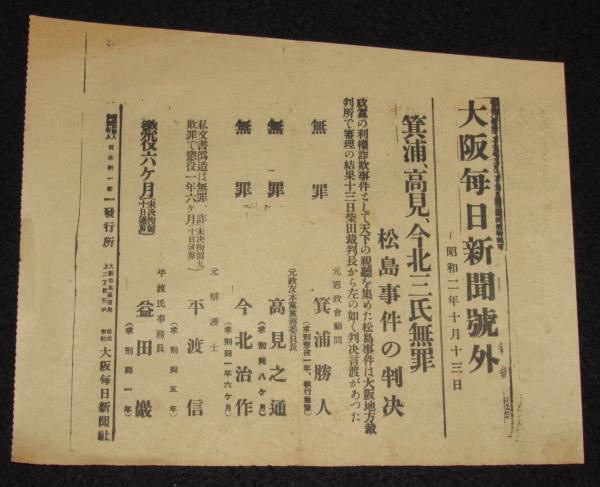 大阪毎日新聞號外
昭和二年十月十三日
箕浦、高見、今北三氏無罪
松島事件の判決
政黨の利權詐欺事件として天下の視聽を集めた松島事件は大阪地方裁
判所で審理の結果十三日柴田裁判長から左の如く判決言渡があつた
元憲政會顧問
無罪 箕浦勝人
(求刑懲役一年、執行猶豫)
元政友本黨黨務委員長
無罪 高見之通
(求刑同八ケ月)
無罪 今北治作
(求刑同一年六ケ月)
元辯護士
私文書僞造は無罪、詐
欺罪で懲役一年六ケ月
(未決拘留九
十日通算)
平渡信
(求刑同五年)
平渡氏事務員
懲役六ケ月
(未決拘留
十日通算)
益田巖
(求刑同一年)
發行所
株式
會社
大阪毎日新聞社